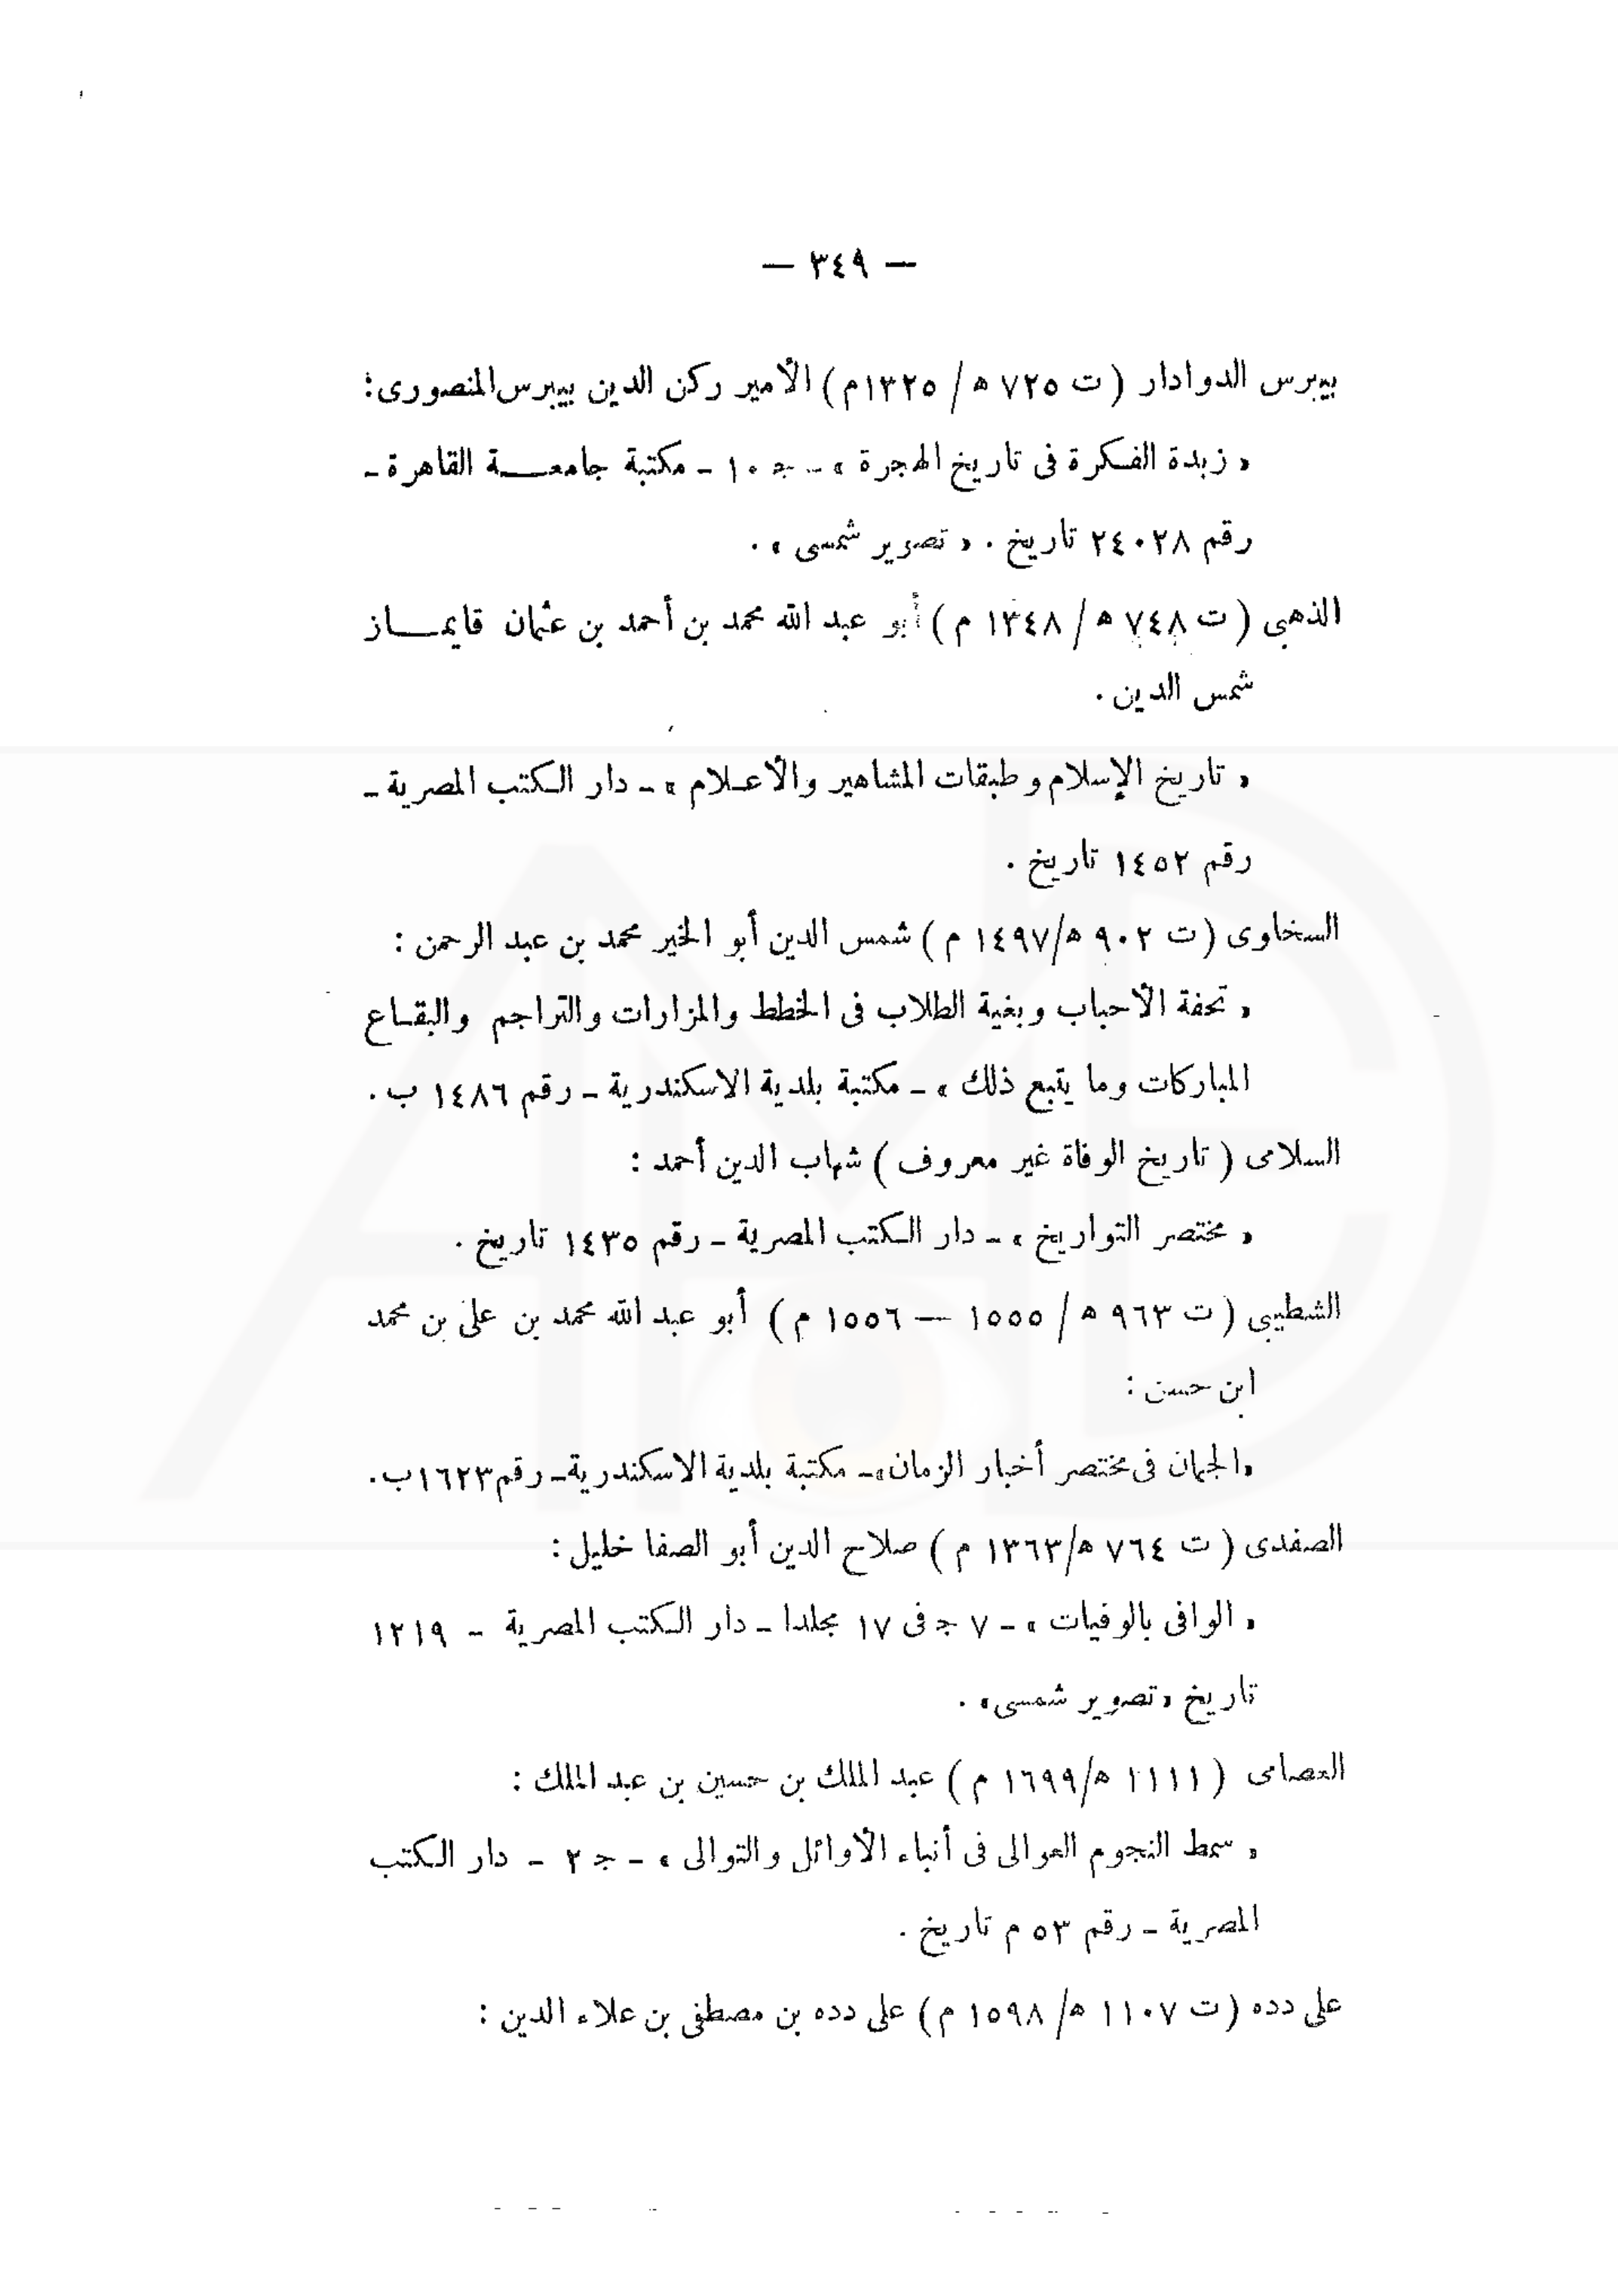 — ٣٤٩ —
بيبرس الدوادار ( ت ٧٢٥ ه / ١٣٢٥م ) الأمير ركن الدين بيبرس المنصورى :
« زبدة الفكرة فى تاريخ الهجرة » ـ ج ١٠ ـ مكتبة جامعة القاهرة ـ
رقم ٢٤٠٢٨ تاريخ . « تصوير شمسى » .
الذهبى ( ت ٧٤٨ ه / ١٣٤٨ م ) أبو عبد الله محمد بن أحمد بن عثمان قايماز
شمس الدين .
« تاريخ الإسلام وطبقات المشاهير والأعلام » ـ دار الكتب المصرية ـ
رقم ١٤٥٢ تاريخ .
السخاوى ( ت ٩٠٢ ه/١٤٩٧ م ) شمس الدين أبو الخير محمد بن عبد الرحمن :
« تحفة الأحباب وبغية الطلاب فى الخطط والمزارات والتراجم والبقاع
المباركات وما يتبع ذلك » ـ مكتبة بلدية الاسكندرية ـ رقم ١٤٨٦ ب .
السلامى ( تاريخ الوفاة غير معروف ) شهاب الدين أحمد :
« مختصر التواريخ » ـ دار الكتب المصرية ـ رقم ١٤٣٥ تاريخ .
الشطيبى ( ت ٩٦٣ ه / ١٥٥٥ — ١٥٥٦ م ) أبو عبد الله محمد بن على بن محمد
ابن حسن :
«الجمان فى مختصر أخبار الزمان» ـ مكتبة بلدية الاسكندرية ـ رقم ١٦٢٣ب .
الصفدى ( ت ٧٦٤ ه/١٣٦٣ م ) صلاح الدين أبو الصفا خليل :
« الوافى بالوفيات » ـ ٧ ج فى ١٧ مجلدا ـ دار الكتب المصرية ـ ١٢١٩
تاريخ «تصوير شمسى» .
العصامى ( ١١١١ ه/١٦٩٩ م ) عبد الملك بن حسين بن عبد الملك :
« سمط النجوم العوالى فى أنباء الأوائل والتوالى » ـ ج ٢ ـ دار الكتب
المصرية ـ رقم ٥٣ م تاريخ .
على دده ( ت ١١٠٧ ه/ ١٥٩٨ م ) على دده بن مصطفى بن علاء الدين :
AMD